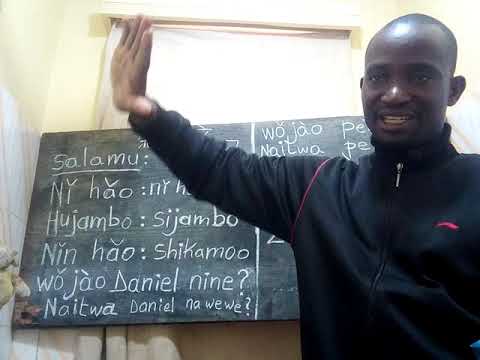 Salamu:
Nǐ hǎo : nǐ h
Hujambo : Sijambo
Nǐn hǎo : Shikamoo
wǒ jào Daniel nine?
Naitwa Daniel na wewe?
wǒ jào pe
Naitwa pe